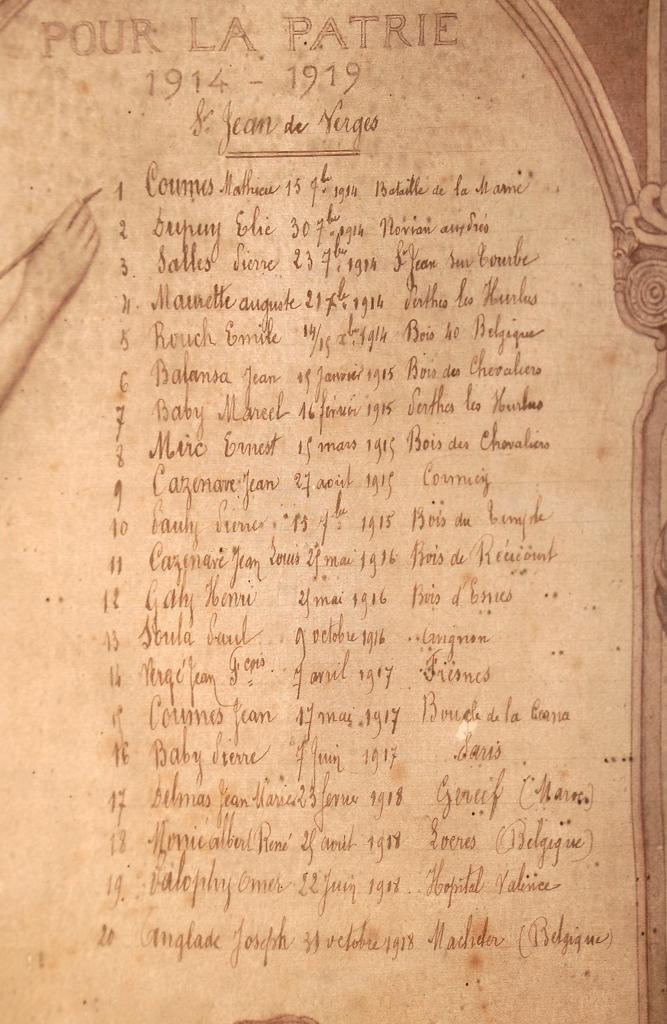 POUR LA PATRIE
1914 - 1919
St Jean de Verges
1 Coumes Mathieu 15 7bre 1914 Bataille de la Marne
2 Dupuy Elie 30 7bre 1914 Norian aux Prés
3 Salles Pierre 23 7bre 1914 St Jean sur Tourbe
4 Maurette auguste 21 Xbre 1914 Perthes les Hurlus
5 Rouch Emile 14/15 xbre 1914 Bois 40 Belgique
6 Balansa Jean 15 Janvier 1915 Bois des Chevaliers
7 Baby Marcel 16 février 1915 Perthes les Hurlus
8 Mirc Ernest 15 mars 1915 Bois des Chevaliers
9 Cazenave Jean 27 août 1915 Cormicy
10 Pauly Pierre 15 7bre 1915 Bois du Temple
11 Cazenave Jean Louis 25 mai 1916 Bois de Récicourt
12 Galy Henri 25 mai 1916 Bois d'Esnes
13 Soula Paul 9 octobre 1916 Avignon
14 Vergé Jean Fçois 7 avril 1917 Fresnes
15 Coumes Jean 17 mai 1917 Boucle de la Cerna
16 Baby Pierre 7 Juin 1917 Paris
17 Delmas Jean Marie 23 fevrier 1918 Guercif (Maroc)
18 albert René 25 avril 1918 Locres (Belgique)
19 Omer 22 Juin 1918 Hopital Valence
20 Anglade Joseph 31 octobre 1918 Machelen (Belgique)